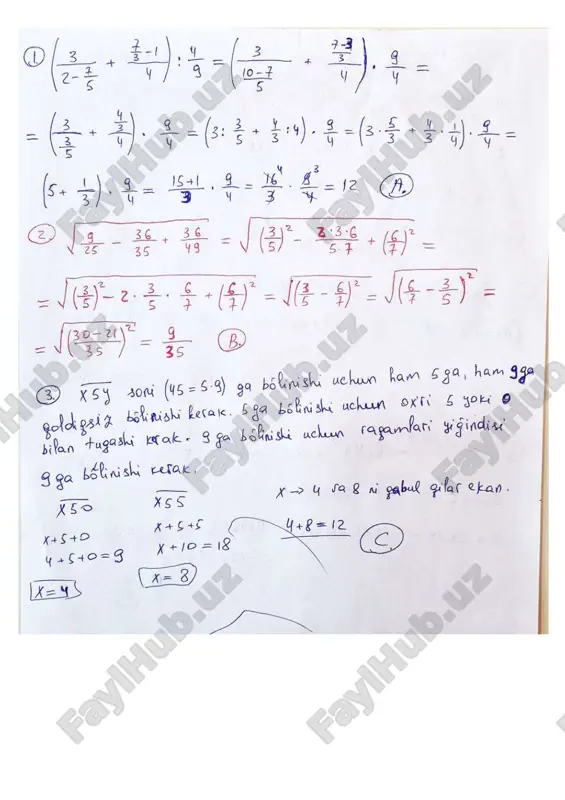 1. (3/(2-7/5) + (7/3-1)/4) : 4/9 = (3/((10-7)/5) + ((7-3)/3)/4) · 9/4 =
= (3/(3/5) + (4/3)/4) · 9/4 = (3 : 3/5 + 4/3 : 4) · 9/4 = (3 · 5/3 + 4/3 · 1/4) · 9/4 =
(5 + 1/3) · 9/4 = (15+1)/3 · 9/4 = 16/3 · 9/4 = 12 A.
2. √(9/25 - 36/35 + 36/49) = √((3/5)² - 2·3·6/5·7 + (6/7)²) =
= √((3/5)² - 2 · 3/5 · 6/7 + (6/7)²) = √((3/5 - 6/7)²) = √((6/7 - 3/5)²) =
= √(((30-21)/35)²) = 9/35 B.
3. x5y soni (45 = 5·9) ga bo'linishi uchun ham 5 ga, ham 9 ga
qoldiqsiz bo'linishi kerak. 5 ga bo'linishi uchun oxiri 5 yoki 0
bilan tugashi kerak. 9 ga bo'linishi uchun raqamlari yig'indisi
9 ga bo'linishi kerak.
x50 x55 x → 4 va 8 ni qabul qilar ekan.
x+5+0 x+5+5 4+8=12 C.
4+5+0=9 x+10=18
x=4 x=8
FaylHub.uz
FaylHub.uz
FaylHub.uz
FaylHub.uz
FaylHub.uz
FaylHub.uz